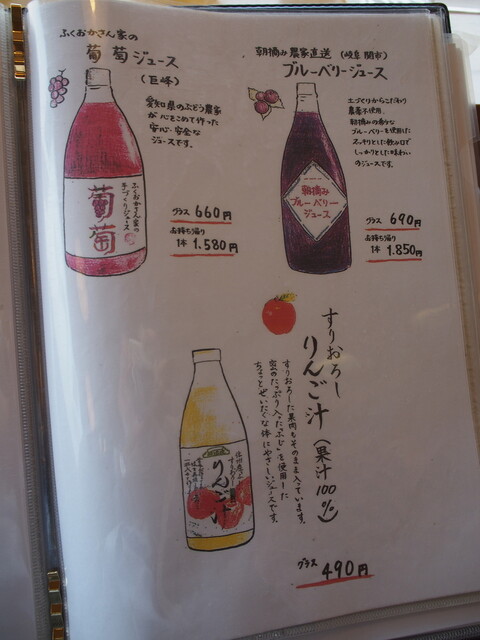 ふくおかさん家の
葡萄ジュース
(巨峰)
愛知県のぶどう農家
が心をこめて作った
安心・安全な
ジュースです。
ふくおかさん家の
手づくりジュース
葡萄
グラス 660円
お持ち帰り
1本 1.580円
朝摘み農家直送 (岐阜 関市)
ブルーベリージュース
土づくりからこだわり
農薬不使用。
朝摘みの香りな
ブルーベリーを使用した
スッキリとした飲み口で
しっかりとした味わい
のジュースです。
朝摘み
ブルーベリー
ジュース
グラス 690円
お持ち帰り
1本 1.850円
すりおろし
りんご汁(果汁100%)
すりおろした果肉もそのまま入っています。
蜜のたっぷり入った"ふじ"を使用した
ちょっとぜいたくな体にやさしいジュースです。
すりおろし
りんご汁
グラス 490円